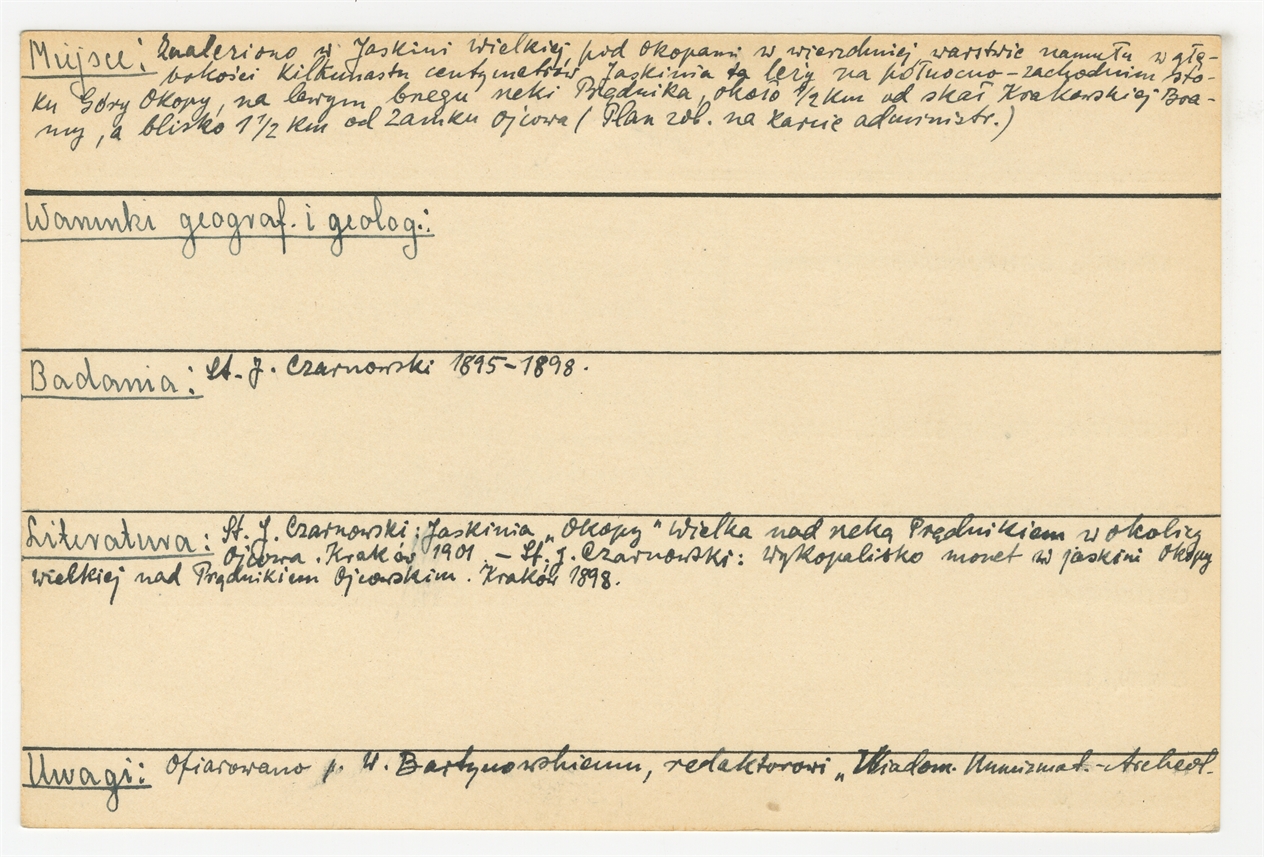 Miejsce: Znaleziono w Jaskini Wielkiej, pod Okopami w wierzchniej warstwie namułu w głę-
bokości kilkunastu centymetrów. Jaskinia ta leży na północno-zachodnim sto-
ku Góry Okopy, na lewym brzegu rzeki Prądnika, około 1/2 km od skał Krakowskiej Bra-
my, a blisko 1 1/2 km od Zamku Ojcowa (Plan zob. na karcie administr.)
Warunki geograf. i geolog.:
Badania: St. J. Czarnowski 1895-1898.
Literatura: St. J. Czarnowski: Jaskinia „Okopy" Wielka nad rzeką Prądnikiem w okolicy
Ojcowa. Kraków 1901 - St. J. Czarnowski: Wykopalisko monet w jaskini Okopy
wielkiej nad Prądnikiem Ojcowskim. Kraków 1898.
Uwagi: Ofiarowano p. W. Bartynowskiemu, redaktorowi „Wiadom. Numizmat.-Archeol.